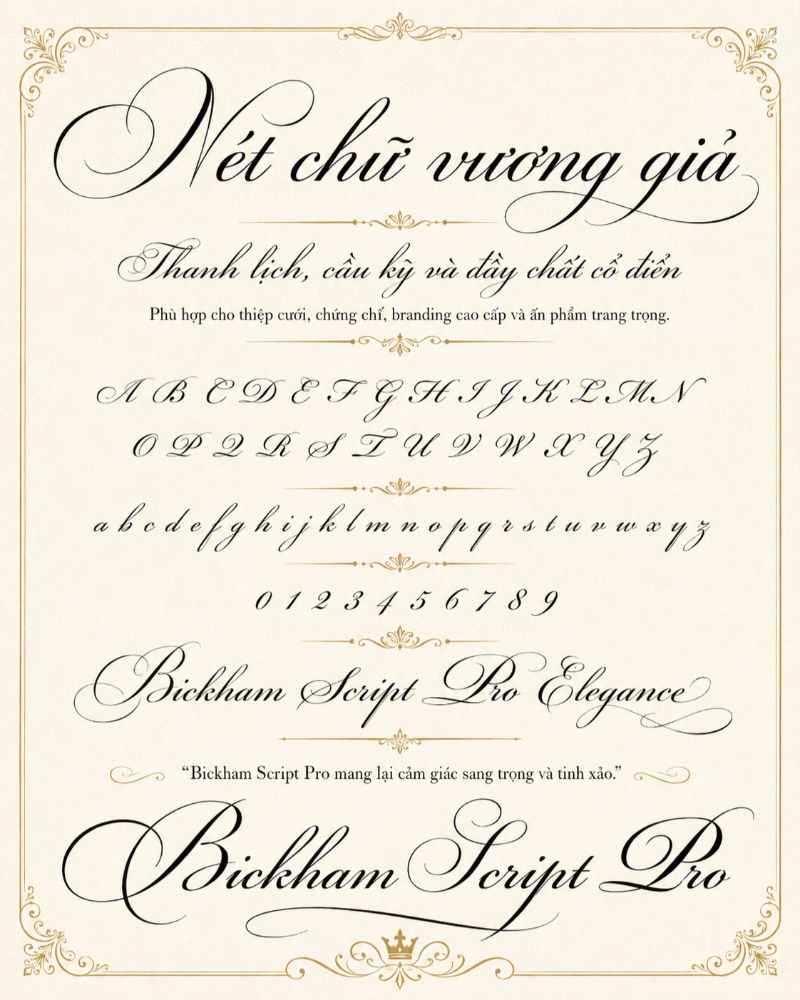 Nét chữ vương giả
Thanh lịch, cầu kỳ và đầy chất cổ điển
Phù hợp cho thiệp cưới, chứng chỉ, branding cao cấp và ấn phẩm trang trọng.
A B C D E F G H I J K L M N
O P Q R S T U V W X Y Z
a b c d e f g h i j k l m n o p q r s t u v w x y z
0 1 2 3 4 5 6 7 8 9
Bickham Script Pro Elegance
“Bickham Script Pro mang lại cảm giác sang trọng và tinh xảo.”
Bickham Script Pro